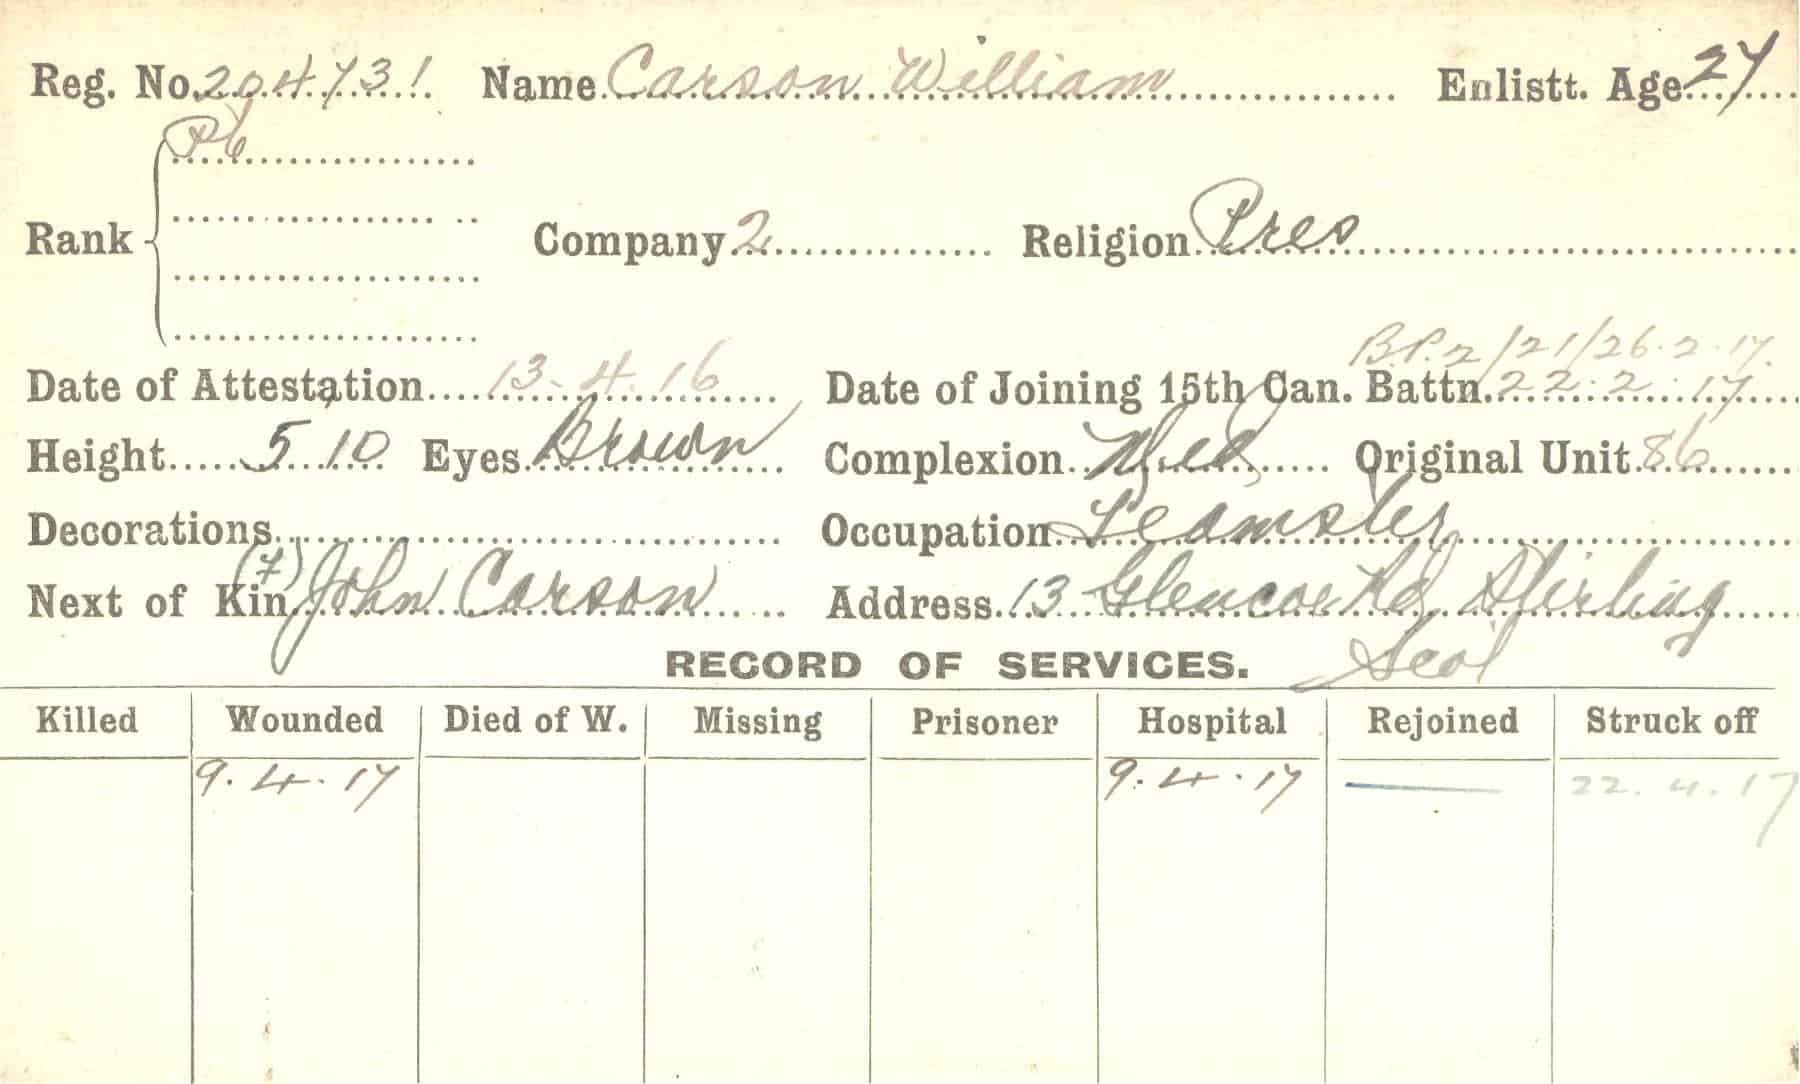 Reg. No. 204731 Name Carson William Enlistt. Age 27
Pte
Rank Company 2 Religion Pres
B.P.2/21/26.2.17.
Date of Attestation 13.4.16 Date of Joining 15th Can. Battn. 22.2.17
Height 5.10 Eyes Brown Complexion Med Original Unit 86
Decorations Occupation Teamster
Next of Kin (F) John Carson Address 13 Glencoe Rd, Stirling
Scot
RECORD OF SERVICES.
Killed Wounded Died of W. Missing Prisoner Hospital Rejoined Struck off
9.4.17 9.4.17 — 22.4.17